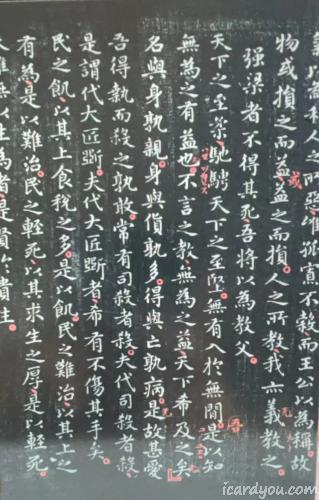 以為和人之所惡惟孤寡不穀而王公以為稱故
物或損之而益或益之而損人之所教我亦義教之
强梁者不得其死吾將以為教父
天下之至柔馳騁天下之至堅無有入於無間是以知
無為之有益也不言之教無為之益天下希及之矣
名與身孰親身與貨孰多得與亡孰病是故甚愛
吾得執而殺之孰敢常有司殺者殺夫代司殺者殺
是謂代大匠斲夫代大匠斲者希有不傷其手矣
民之飢以其上食稅之多是以飢民之難治以其上之
有為是以難治民之輕死以其求生之厚是以輕死
夫唯無以生為者是賢於貴生
icardyou.com